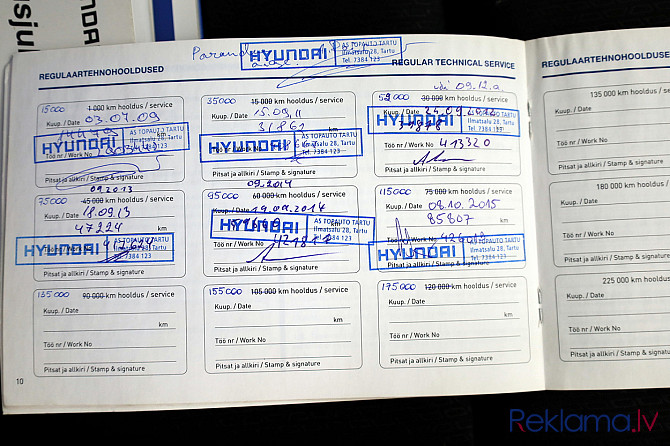 REGULAARTEHNOHOOLDUSED
HYUNDAI
AS TOPAUTO TARTU
Ilmatsalu 28, Tartu
Tel. 7384 123
REGULAR TECHNICAL SERVICE
REGULAARTEHNOHOOLDUSED
15000 1 000 km hooldus / service
Kuup. / Date 03.07.09
km
HYUNDAI
AS TOPAUTO TARTU
Ilmatsalu 28, Tartu
Tel. 7384 123
Töö nr / Work No
Pitsat ja allkiri / Stamp & signature
35000 15 000 km hooldus / service
Kuup. / Date 15.09.11
31861 km
HYUNDAI
AS TOPAUTO TARTU
Ilmatsalu 28, Tartu
Tel. 7384 123
Töö nr / Work No
Pitsat ja allkiri / Stamp & signature
30 000 km hooldus / service
09.12.a.
Kuup. / Date
HYUNDAI
AS TOPAUTO TARTU
Ilmatsalu 28, Tartu
Tel. 7384 123
Töö nr / Work No 413320
Pitsat ja allkiri / Stamp & signature
09.2013
75000 45 000 km hooldus / service
Kuup. / Date 18.09.13
47224 km
HYUNDAI
AS TOPAUTO TARTU
Ilmatsalu 28, Tartu
Tel. 7384 123
Pitsat ja allkiri / Stamp & signature
09.2014
95000 60 000 km hooldus / service
Kuup. / Date
HYUNDAI
AS TOPAUTO TARTU
Ilmatsalu 28, Tartu
Tel. 7384 123
Töö nr / Work No
Pitsat ja allkiri / Stamp & signature
115000 75 000 km hooldus / service
Kuup. / Date 08.10.2015
85807 km
Töö nr / Work No
HYUNDAI
AS TOPAUTO TARTU
Ilmatsalu 28, Tartu
Tel. 7384 123
Pitsat ja allkiri / Stamp & signature
135000 90 000 km hooldus / service
Kuup. / Date
km
Töö nr / Work No
Pitsat ja allkiri / Stamp & signature
155000 105 000 km hooldus / service
Kuup. / Date
km
Töö nr / Work No
Pitsat ja allkiri / Stamp & signature
175000 120 000 km hooldus / service
Kuup. / Date
km
Töö nr / Work No
Pitsat ja allkiri / Stamp & signature
135 000 km hooldus
Kuup. / Date
Töö nr / Work No
Pitsat ja allkiri / Stamp &
180 000 km hooldus
Kuup. / Date
Töö nr / Work No
Pitsat ja allkiri / Stamp &
225 000 km
Kuup. / Date
Töö nr / Work No
Pitsat ja allkiri / Stamp
10
Reklama.lv